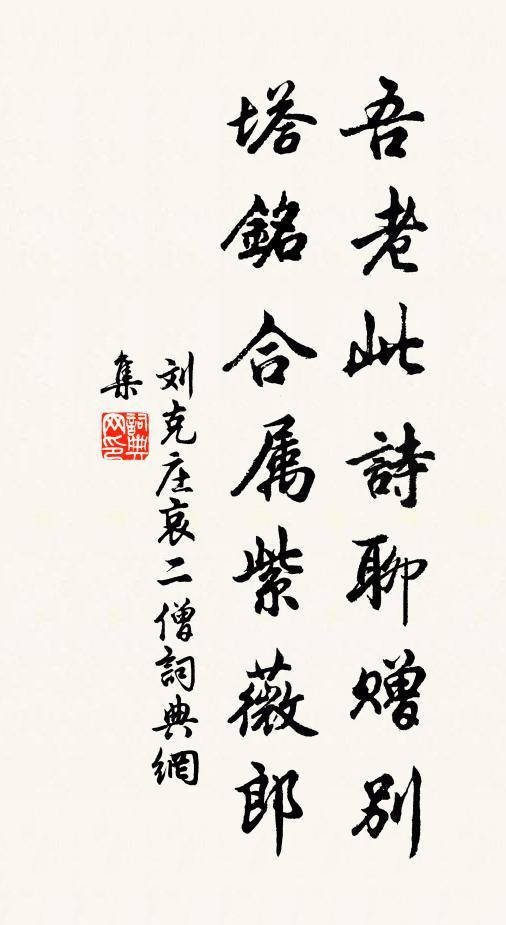 吾老此詩聊赠别
塔銘合属紫薇郎
刘克庄哀二僧詞典網
集
詞典网印